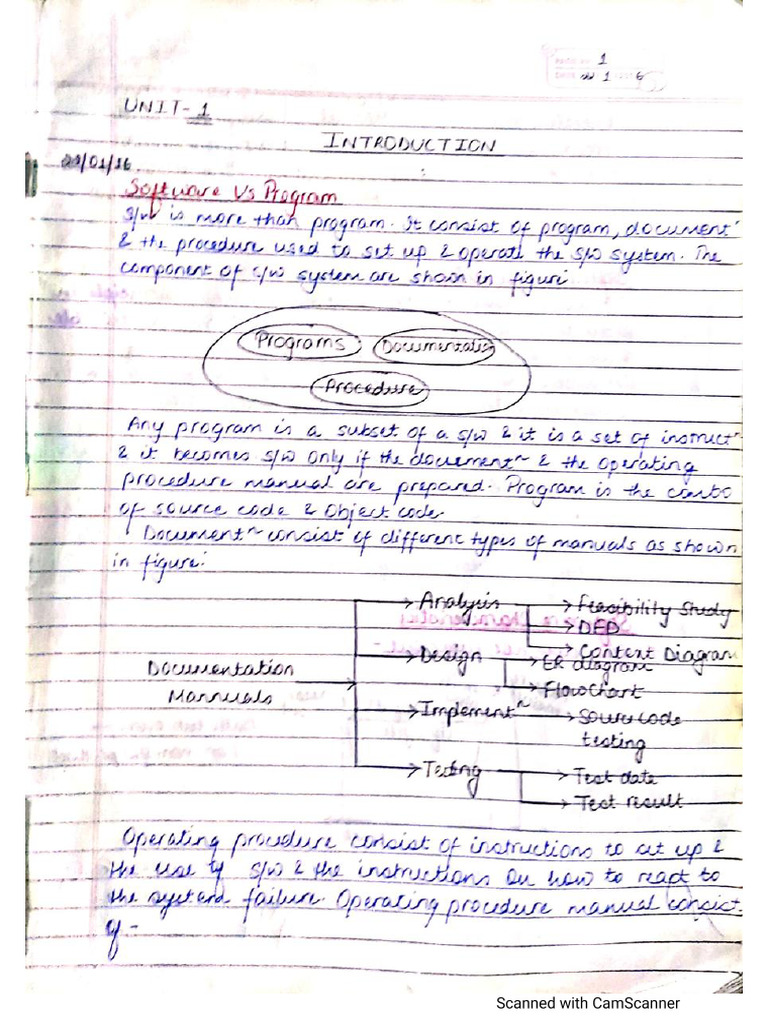 1
1 6
UNIT-1
INTRODUCTION
/01/16
Software Vs Program
S/W is more than program. It consist of program, document~
& the procedure used to set up & operate the S/W system. The
component of S/W system are shown in figure
Programs Documentatio
Procedure
Any program is a subset of a S/W & it is a set of instruct~
& it becomes S/W only if the document~ & the operating
procedure manual are prepared. Program is the combo
of source code & Object code.
Document~ consist of different types of manuals as shown
in figure:
Analysis → Feasibility Study
→ DFD
→ Context Diagram
Design → ER diagram
Documentation
Mannuals
→ FlowChart
Implement~ → Source code
testing
Testing → Test date
→ Test result
Operating procedure consist of instructions to set up &
the use of S/W & the instructions on how to react to
the system failure. Operating procedure manual consist
of -
Scanned with CamScanner